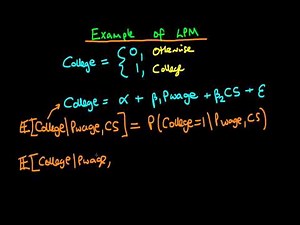 Example of LPM
College = { 0, Otherwise
1, College
College = α + β₁Pwage + β₂CS + ε
𝔼[College|Pwage, CS] = P(College=1|Pwage, CS)
𝔼[College|Pwage,